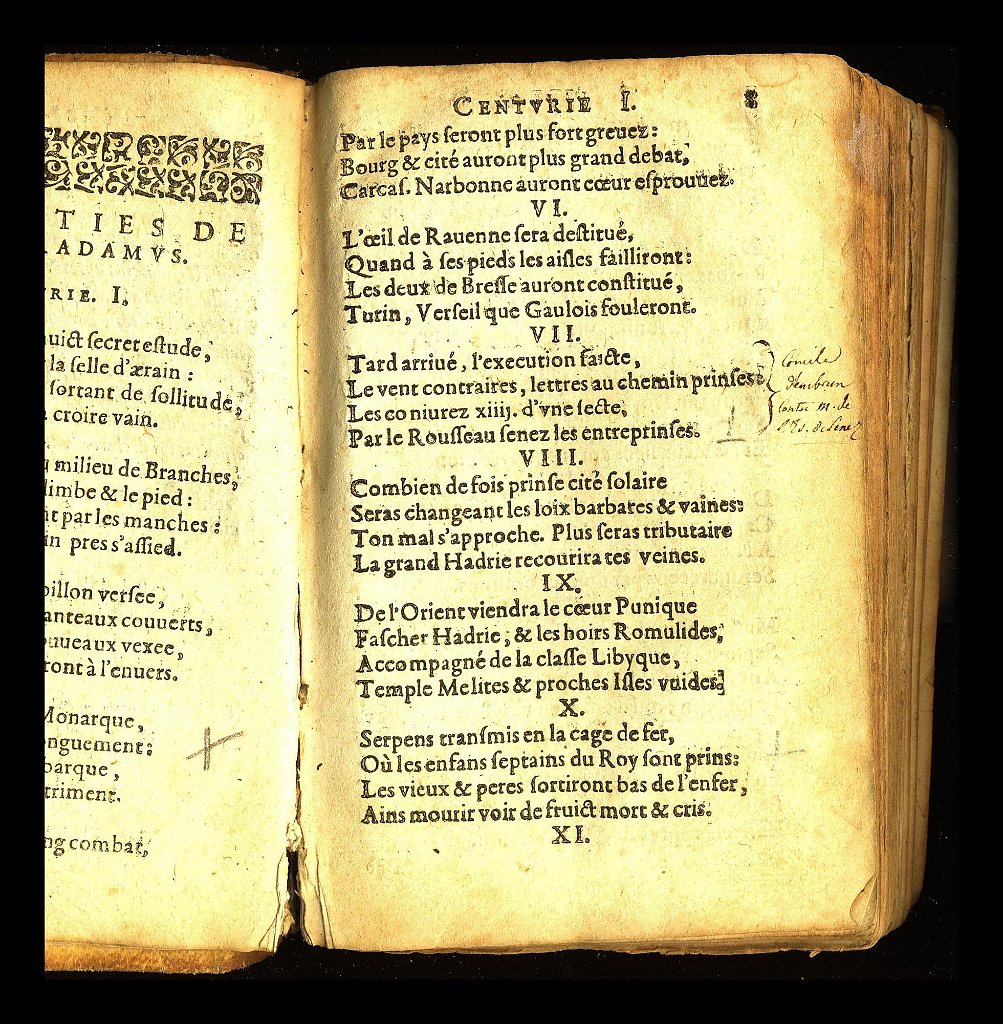 TIES DE
ADAMVS.
RIE. I.
uict secret estude,
la selle d'ærain :
sortant de sollitude,
croire vain.
milieu de Branches,
limbe & le pied :
nt par les manches :
in pres s'assied.
billon versee,
anteaux couuerts,
uueaux vexee,
ront à l'enuers.
Monarque,
onguement:
barque,
triment.
ng combat,
CENTVRIE I. 8
Par le pays seront plus fort greuez:
Bourg & cité auront plus grand debat,
Carcas. Narbonne auront cœur esprouuez.
VI.
L'œil de Rauenne sera destitué,
Quand à ses pieds les aisles failliront:
Les deux de Bresse auront constitué,
Turin, Verseil que Gaulois fouleront.
VII.
Tard arriué, l'execution faicte,
Le vent contraires, lettres au chemin prinses:
Les coniurez xiiij. d'vne secte,
Par le Rousseau senez les entreprinses.
Concile
d'embrun
Contre m. de
VIII.
Combien de fois prinse cité solaire
Seras changeant les loix barbares & vaines:
Ton mal s'approche. Plus seras tributaire
La grand Hadrie recourira tes veines.
IX.
De l'Orient viendra le cœur Punique
Fascher Hadrie, & les hoirs Romulides,
Accompagné de la classe Libyque,
Temple Melites & proches Isles vuides.
X.
Serpens transmis en la cage de fer,
Où les enfans septains du Roy sont prins:
Les vieux & peres sortiront bas de l'enfer,
Ains mourir voir de fruict mort & cris.
XI.